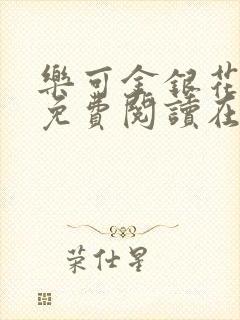 樂可金銀花
免費閱讀在
荣仕星